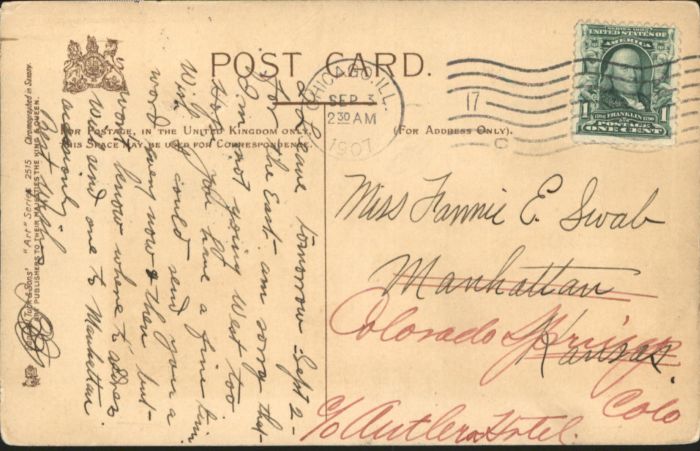 POST CARD.
FOR POSTAGE, IN THE UNITED KINGDOM ONLY,
THIS SPACE MAY BE USED FOR CORRESPONDENCE.
(FOR ADDRESS ONLY).
CHICAGO, ILL.
SEP 3
2 30 AM
1907
17
C
SERIES 1902
UNITED STATES OF
AMERICA
1 FRANKLIN 1
POSTAGE
ONE CENT
Miss Fannie E. Swab
Manhattan
Kansas.
Colorado Springs
Colo
c/o Antlers Hotel.
I leave tomorrow Sept 2-
for the East. am sorry that-
I'm not going West too
Hope you have a fine time.
Wish I could send you a
word every now & then but-
won't know where to address
Will send one to Manhattan
occasionly.
Best Wishes
Tuck & Sons' "Art" Series 2515 Chromographed in Saxony.
PUBLISHERS TO THEIR MAJESTIES THE KING & QUEEN.